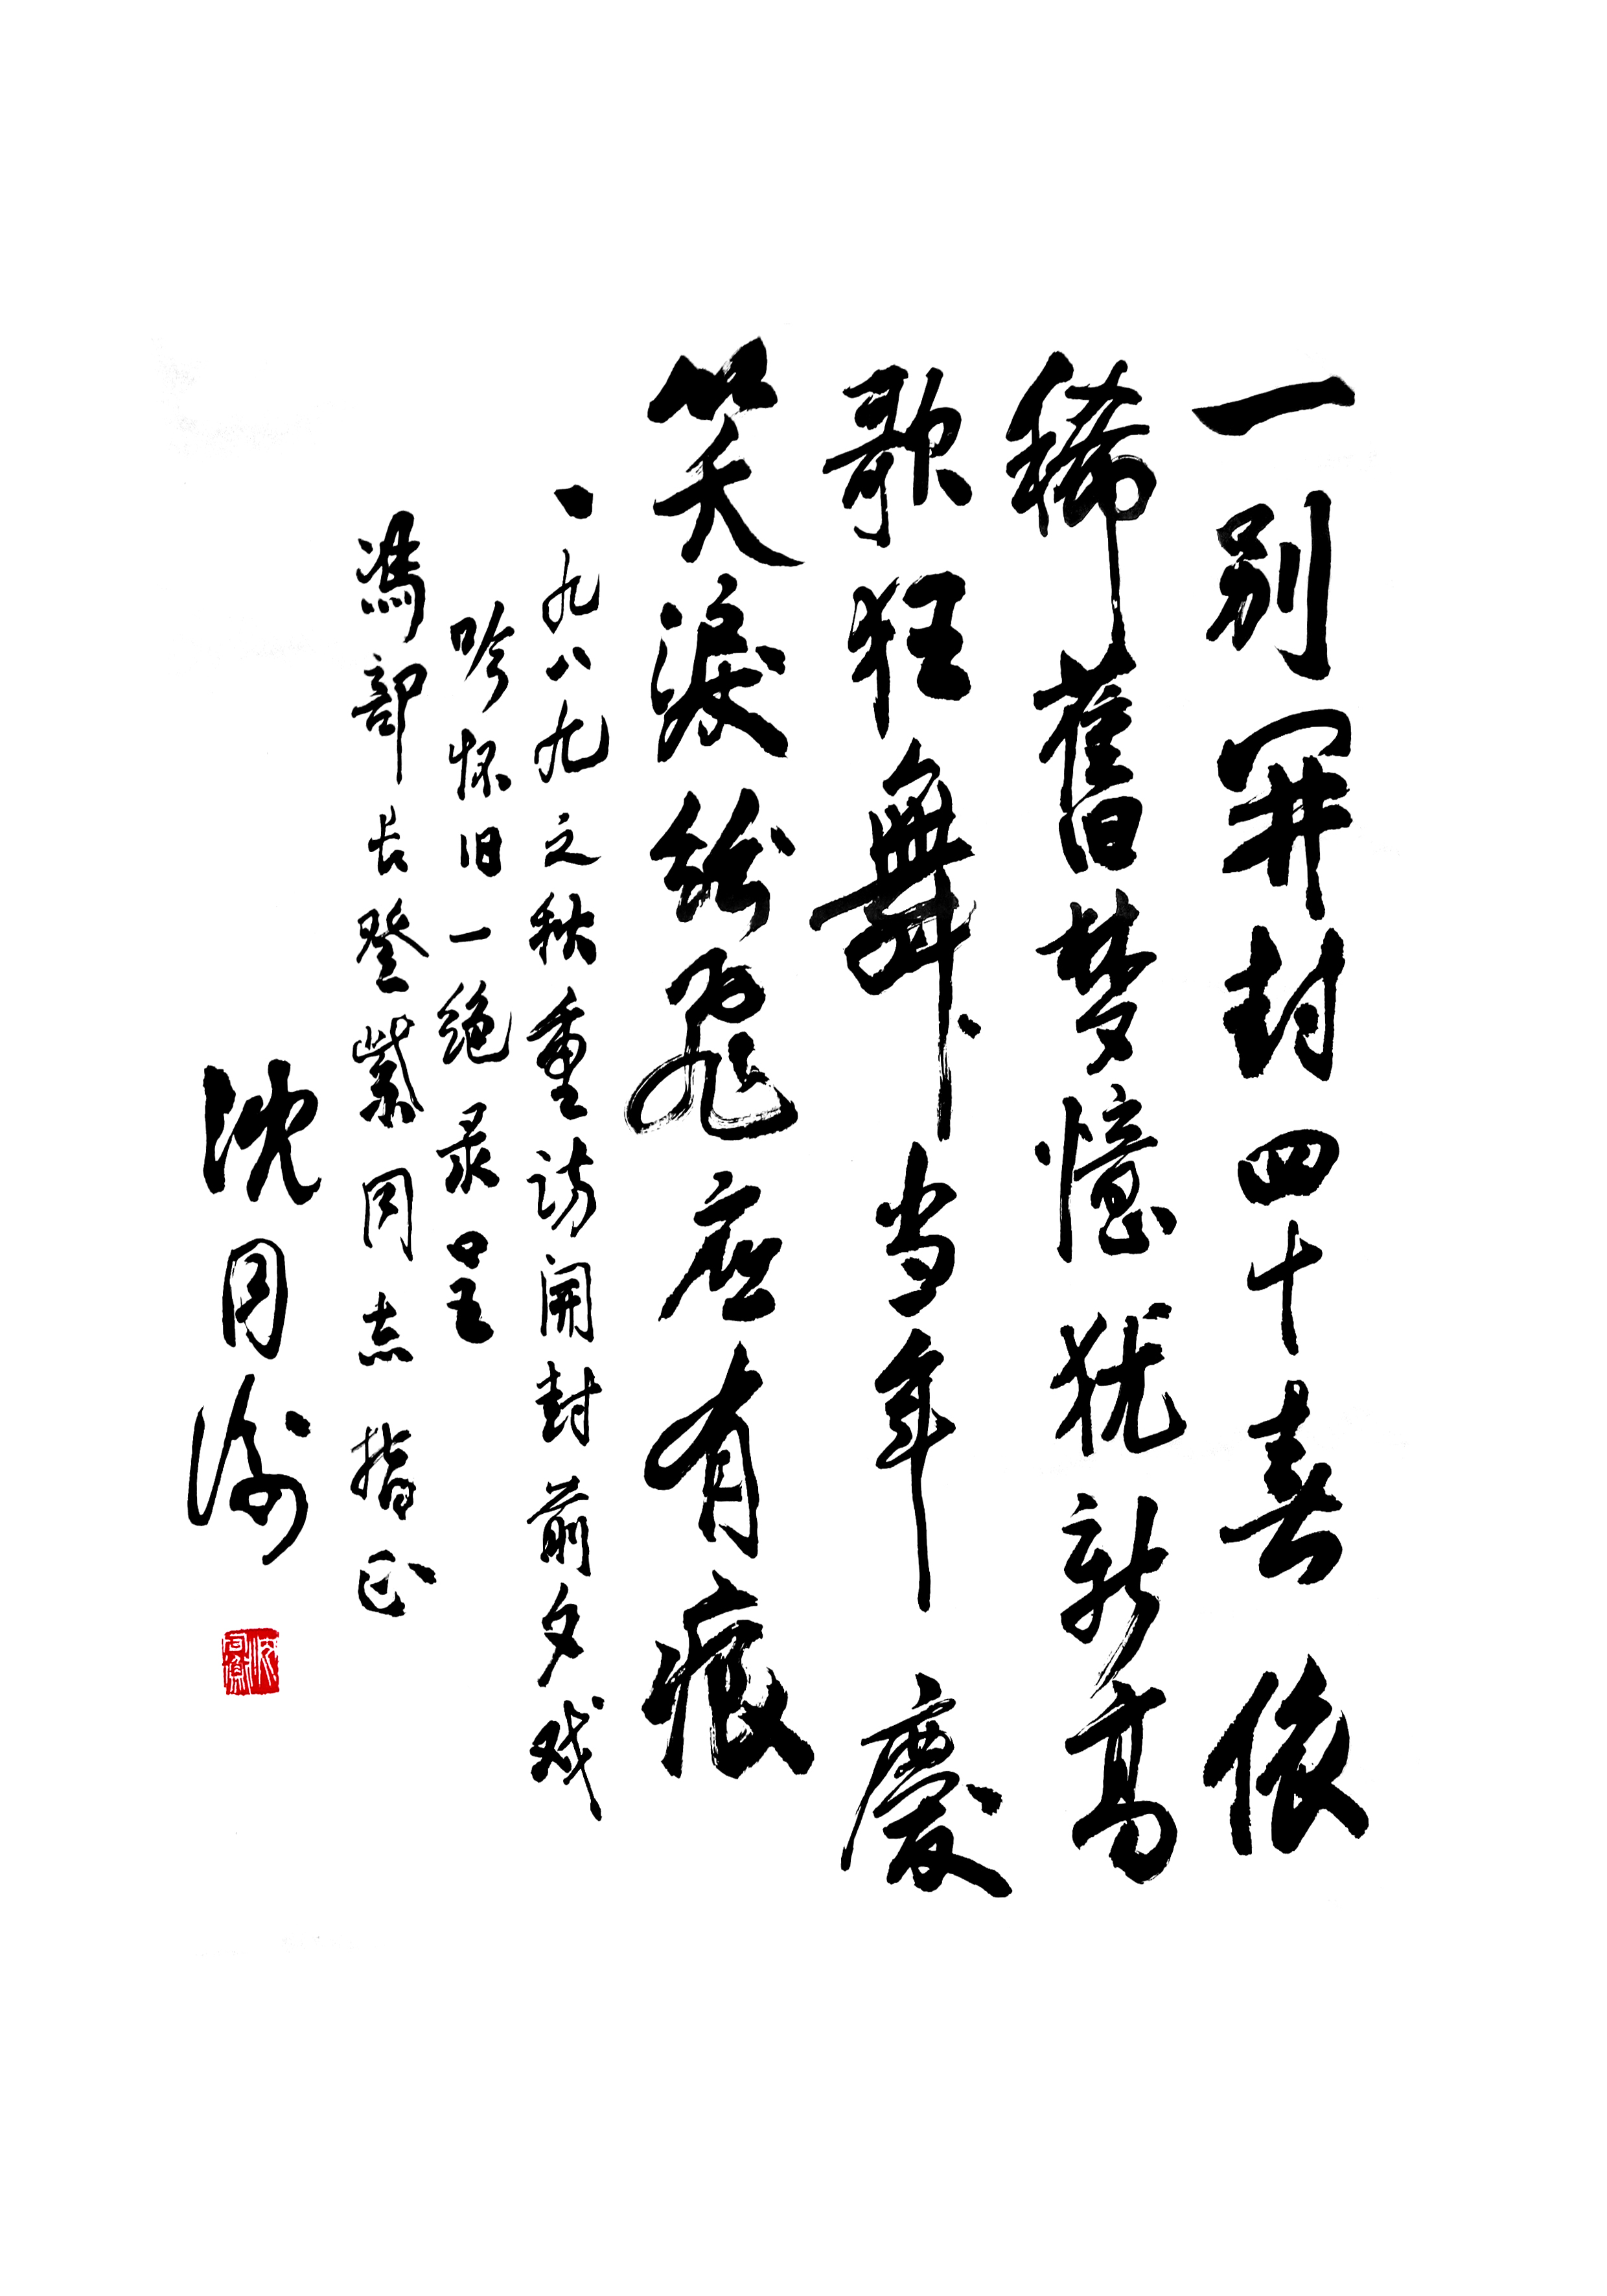 一别开封四十春依
稀舊梦憶犹新高
歌狂舞当年慶
笑淚纷飛应有痕
一九八九之秋重访開封前夕戏
吟怀旧一绝录呈
馮部长登紫同志指正
沈同衡